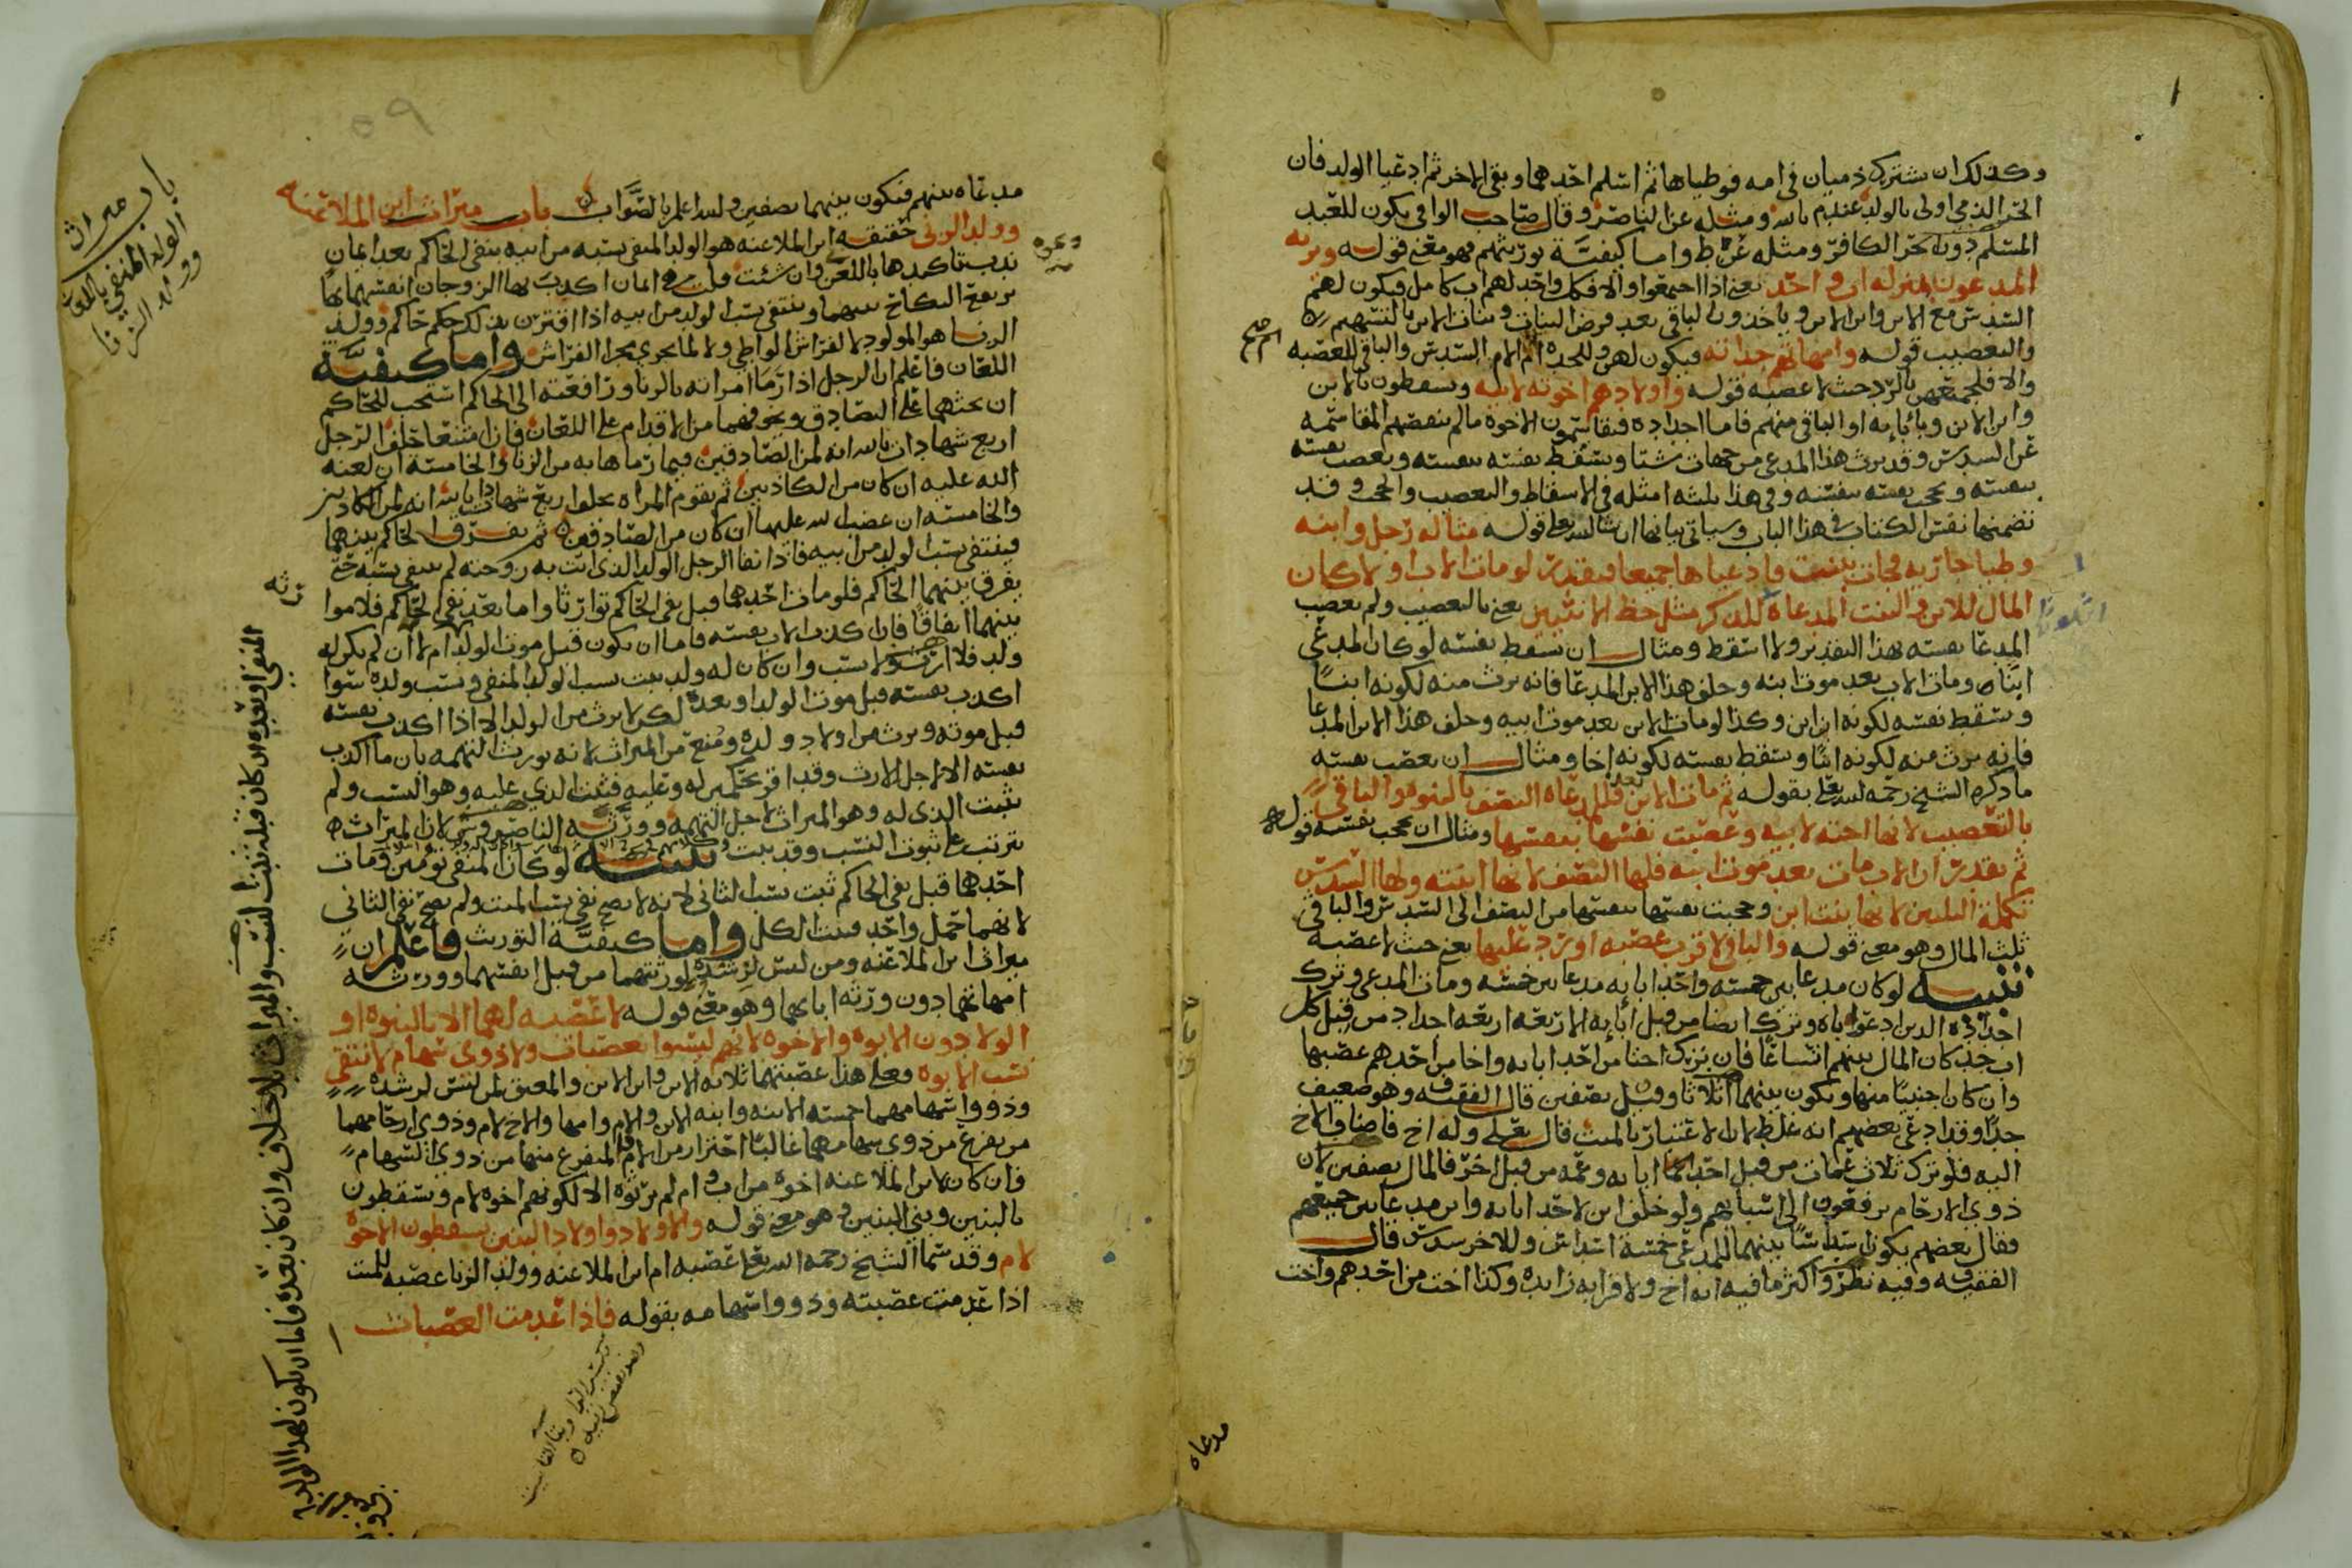 وكذلك ان يشترك ذميان في امه فوطياها ثم اسلم احدهما وبقي الاخر ثم ادعيا الولد فان
الحر الذمي اولى بالولد عند م بالله ومثله عن الناصر وقال صاحب الوافي يكون للعبد
المسلم دون الحر الكافر ومثله عن ط واما كيفية توريثهم فهو معنى قوله ويرثه
المدعون بمنزله اب واحد يعني اذا اجتمعوا والا فكل واحد لهم اب كامل فيكون لهم
السدس مع الابن وابن الابن وياخذون الباقي بعد فرض البنات وبنات الابن بالتسهيم
والتعصيب قوله وامهاتهم جداته فيكون لهن وللجده ام الام السدس والباقي للعصبه
والا فلجميعهن بالرد حيث لا عصبه قوله واولادهم اخوته لابيه ويسقطون بالابن
وابن الابن وبابائه او الباقي منهم فاما اجداده فيقاسمون الاخوة مالم ينقصهم المقاسمه
عن السدس وقد يرث هذا المدعى من جهات شتا ويسقط نفسه بنفسه ويعصب نفسه
بنفسه ويحجب نفسه بنفسه وفي هذا ثلثه امثله في الاسقاط والتعصيب والحجب وقد
تضمنها نفس الكتاب في هذا الباب وسياتي بيانها ان شا الله تعلى قوله مثاله رجل وابنه
وطيا جاريه فجات ببنت فادعياها جميعا فيقدر لو مات الاب اولا كان
المال للابن والبنت المدعاه للذكر مثل حظ الانثيين يعني بالتعصيب ولم يعصب
المدعا نفسه بهذا التقدير ولا اسقط ومثال ان يسقط نفسه لو كان المدعى
ابنا ومات الاب بعد موت ابنه وخلف هذا الابن المدعا فانه يرث منه لكونه ابنًا
ويسقط نفسه لكونه ابن ابن وكذا لو مات الابن بعد موت ابيه وخلف هذا الابن المدعا
فانه يرث منه لكونه ابنًا ويسقط نفسه لكونه اخا ومثال ان يعصب نفسه
ما ذكره الشيخ رحمه الله تعلى بقوله ثم مات الابن بعد فللمدعاه النصف بالبنوه والباقي
بالتعصيب لانها اخته لابيه وعصبت نفسها بنفسها ومثال ان يحجب نفسه قوله
ثم يقدر ان الاب مات بعد موت ابنه فلها النصف لانها ابنته ولها السدس
تكملة الثلثين لانها بنت ابن وحجبت نفسها بنفسها من النصف الى السدس والباقي
ثلث المال وهو معنى قوله والباقي لاقرب عصبه او يرد عليها يعني حيث لا عصبه
تنبيه لو كان مدعا بين خمسه واحد ابائه مدعا بين خمسه ومات المدعى وترك
اجداده الذين ادعوا اباه وترك ايضا من قبل ابائه الاربعه اربعه اجداد من قبل كل
اب جد كان المال بينهم اتساعًا فان ترك اختا من احد ابائه واخا من احدهم عصبها
وان كان اجنبيًا منها ويكون بينهما اثلاثا وقيل نصفين قال الفقيه ف وهو ضعيف
جدًا وقد ادعى بعضهم انه غلط لان الاعتبار بالميت قال تعلى وله اخ فاضاف الاخ
اليه فلو ترك ثلاث عمات من قبل احد ابائه وعمه من قبل اخر فالمال نصفين لان
ذوي الارحام يرفعون الى اسبابهم ولو خلف ابن لاحد ابائه وابن مدعا بين جميعهم
فقال بعضهم يكون اسداسًا بينهما للمدعى خمسة اسداس وللاخر سدس قال
الفقيه ف وفيه نظر واكثر ما فيه انه اخ ولا قرابه زايده وكذا اخت من احدهم واخت
مدعاه
مدعاه بينهم فيكون بينهما نصفين والله اعلم بالصواب باب ميراث ابن الملاعنه
وولد الزنى حقيقه ابن الملاعنه هو الولد المنفي نسبه من ابيه بنفي الحاكم بعد ايمان
تدب تاكيدها باللعن وان شئت قلت هو ايمان اكدت بها الزوجان انفسهما بها
يرتفع النكاح بينهما وينتفي نسب الولد من ابيه اذا اقترن بذلك حكم حاكم وولد
الزنا هو المولود لا لفراش الواطي ولا لما يجري مجرا الفراش واما كيفية
اللعان فاعلم ان الرجل اذا رما امراته بالزنا ورافعته الى الحاكم استحب للحاكم
ان يحثهما على التصادق ويخوفهما من الاقدام على اللعان فان امتنعا حلف الرجل
اربع شهادات بالله انه لمن الصادقين فيما رماها به من الزنا والخامسة ان لعنه
الله عليه ان كان من الكاذبين ثم تقوم المراه تحلف اربع شهادات بالله انه لمن الكاذبين
والخامسه ان غضب الله عليها ان كان من الصادقين ثم يفرق الحاكم بينهما
فينتفي نسب الولد من ابيه فاذا نفا الرجل الولد الذي اتت به زوجته لم ينتفي نسبه حتى
يفرق بينهما الحاكم فلو مات احدهما قبل نفي الحاكم توارثا واما بعد نفي الحاكم فلا توا
بينهما اتفاقًا فان اكذب الاب نفسه فاما ان يكون قبل موت الولد ام لا ان لم يكن له
ولد فلا ارث ولا نسب وان كان له ولد ثبت نسب الولد المنفي ونسب ولده سوا
اكذب نفسه قبل موت الولد او بعده لكن لا يرث من الولد الا اذا اكذب نفسه
قبل موته ويرث من اولاد ولده ومنع من الميراث لانه يورث التهمه بان ما اكذب
نفسه الا لاجل الارث وقد اقر بحكمين له وعليه فثبت الذي عليه وهو النسب ولم
يثبت الذي له وهو الميراث لاجل التهمة وورثه الناصر وش لان الميراث
يترتب على ثبوت النسب وقد ثبت تنبيه لو كان المنفي توءمين ومات
احدهما قبل نفي الحاكم ثبت نسب الثاني لانه لا يصح نفي نسب الميت ولم يصح نفي الثاني
لانهما حمل واحد فثبت الكل واما كيفية التوريث فاعلم ان
ميراث ابن الملاعنه ومن ليس لرشده لورثتهما من قبل انفسهما وورثه
امهاتهما دون ورثه ابائهما وهو معنى قوله لا عصبه لهما الا بالبنوه او
الولا دون الابوه والاخوه لانهم ليسوا بعصبات ولا ذوى سهام لا تنتفي
نسب الابوه فعلى هذا عصبتهما ثلاثه الابن وابن الابن والمعتق لمن ليس لرشده
وذووا سهامهما خمسه الابنه وابنه الابن والام وامها والاخ لام وذوي ارحامهما
من يفرع من ذوي سهامهما غالبًا احتراز من الام فالمتفرع منها من ذوي السهام
فان كان لابن الملاعنه اخوه من اب وام لم يرثوه الا لكونهم اخوه لام ويسقطون
بالبنين وبني البنين وهو معنى قوله والاولاد واولاد البنين يسقطون الاخوة
لام وقد سما الشيخ رحمه الله تعلى عصبه ام ابن الملاعنه وولد الزنا عصبه للميت
اذا عدمت عصبته وذووا سهامه بقوله فاذا عدمت العصبات
باب ميراث
الولد المنفي باللعان
وولد الزنا